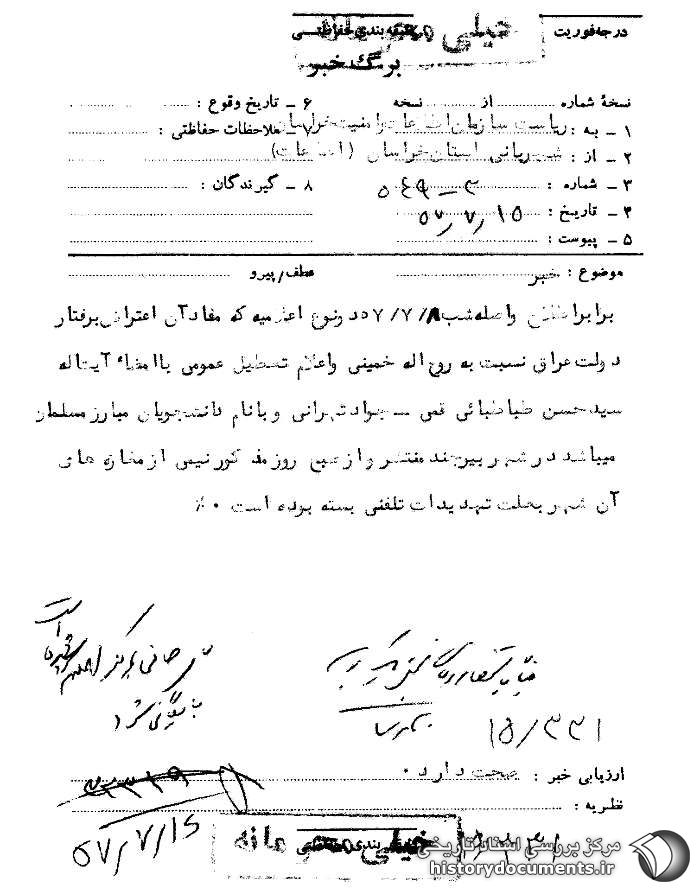 خیلی محرمانه
درجه فوریت
طبقه بندی حفاظتی
برگ خبر
نسخهٔ شماره ........ از ........ نسخه
۱ ـ به : ریاست سازمان اطلاعات و امنیت خراسان
۲ ـ از : شهربانی استان خراسان (اطلاعات)
۳ ـ شماره : ۳ – ۵۴۹
۴ ـ تاریخ : ۵۷٫۷٫۱۵
۵ ـ پیوست :
۶ ـ تاریخ وقوع :
۷ ـ ملاحظات حفاظتی :
۸ ـ گیرندگان :
موضوع : خبر
عطف/پیرو
برابر اطلاع واصله شب ۵۷/۷/۸ دونوع اعلامیه که مفاد آن اعتراض برفتار
دولت عراق نسبت به روح اله خمینی واعلام تعطیل عمومی باامضاء آیت اله
سید حسن طباطبائی قمی ـ جواد تهرانی و بانام دانشجویان مبارز مسلمان
میباشد در شهر بیرجند منتشر و از صبح روز مذکور نیمی از مغازه های
آن شهر بعلت تهدیدات تلفنی بسته بوده است ۰٪
بایگانی شود
۱۵/۳۳۱
ارزیابی خبر : صحت دارد۰
نظریه :
۵۷٫۷٫۱۵
خیلی محرمانه
طبقه بندی حفاظتی
مرکز بررسی اسناد تاریخی
historydocuments.ir